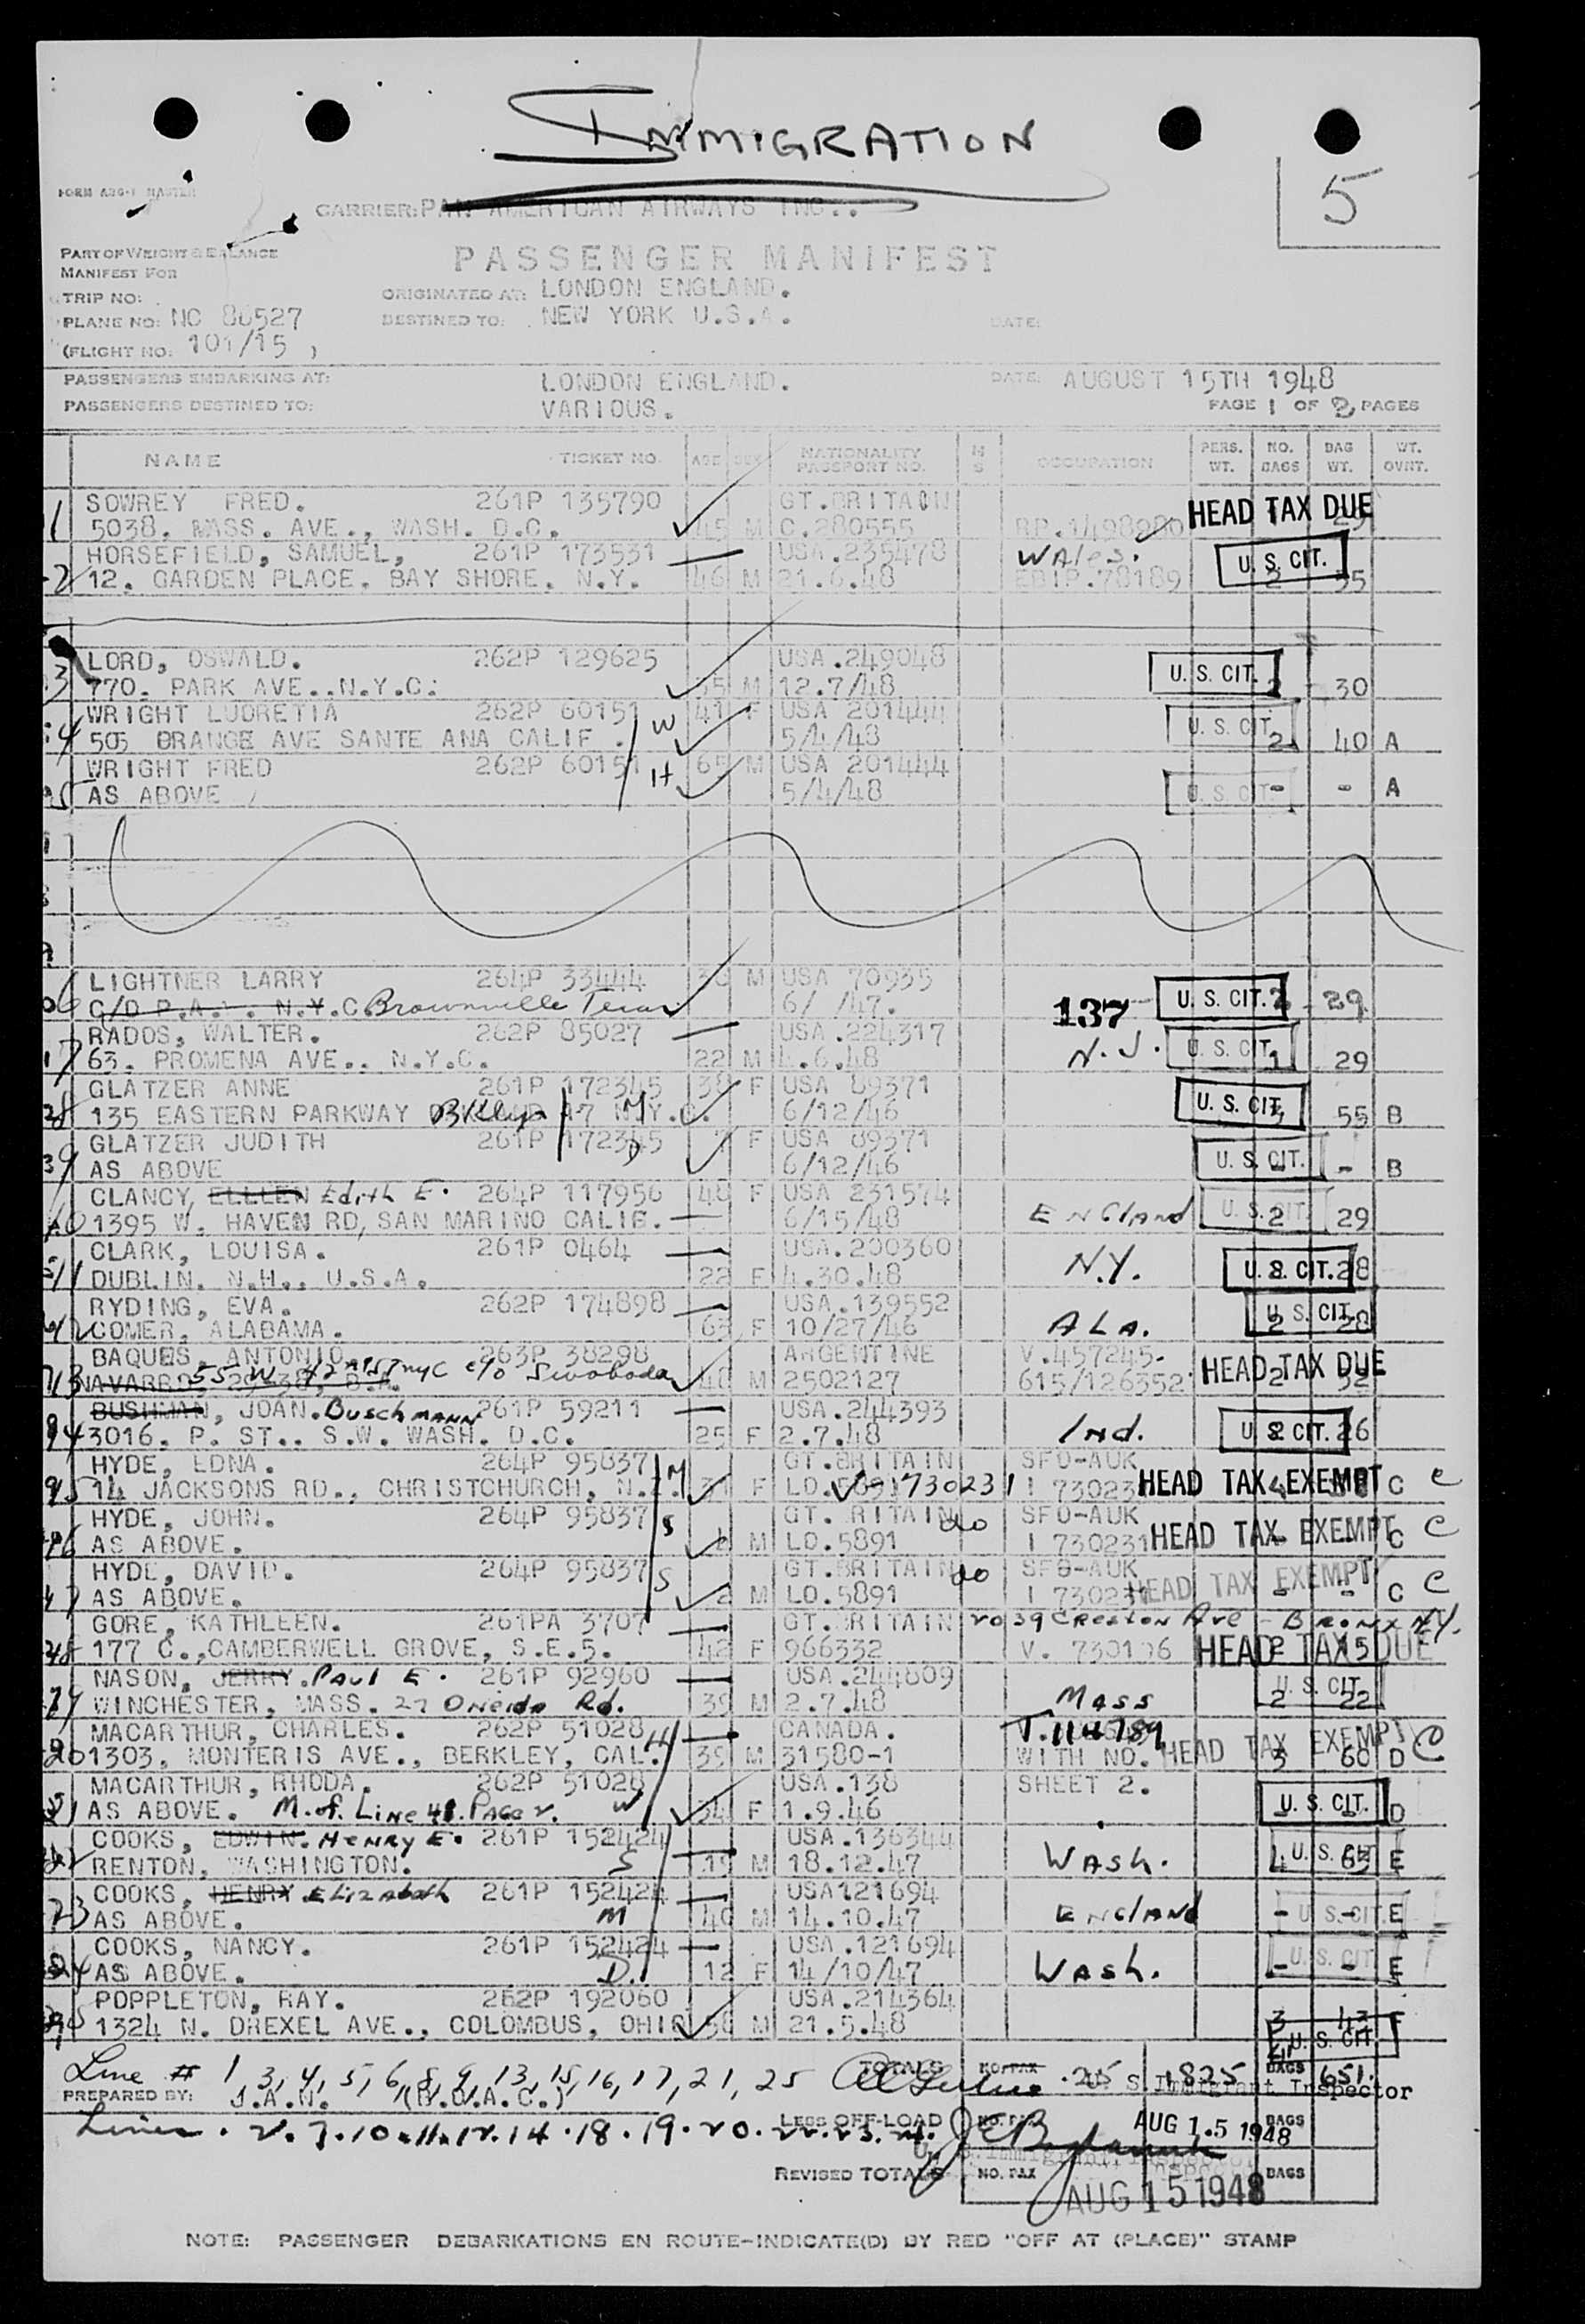 IMMIGRATION
5
FORM MASTER
CARRIER: PAN AMERICAN AIRWAYS INC..
PART OF WEIGHT & BALANCE
MANIFEST FOR
PASSENGER MANIFEST
TRIP NO:
ORIGINATED AT: LONDON ENGLAND.
PLANE NO: NC 88527
DESTINED TO: NEW YORK U.S.A. DATE:
(FLIGHT NO: 101/15 )
PASSENGERS EMBARKING AT: LONDON ENGLAND. DATE: AUGUST 15TH 1948
PASSENGERS DESTINED TO: VARIOUS. PAGE 1 OF 2 PAGES
NAME TICKET NO. AGE SEX NATIONALITY PASSPORT NO. M S OCCUPATION PERS. WT. NO. BAGS BAG WT. WT. OVNT.
1 SOWREY FRED. 261P 135790 GT.BRITAIN HEAD TAX DUE
5038. MASS. AVE., WASH. D.C. 45 M C.280555
HORSEFIELD, SAMUEL, 261P 173531 USA.235478 WAles. U. S. CIT.
2 12. GARDEN PLACE. BAY SHORE. N.Y. 46 M 21.6.48 EDIP.78189 2 35
LORD, OSWALD. 262P 129625 USA.249048 U. S. CIT.
3 770. PARK AVE..N.Y.C. 55 M 12.7/48 2 30
WRIGHT LUCRETIA 262P 60151 W 41 F USA 201444 U. S. CIT.
4 505 ORANGE AVE SANTE ANA CALIF . 5/4/48 2 40 A
WRIGHT FRED 262P 60151 H 65 M USA 201444
5 AS ABOVE 5/4/48 U. S. CIT. - - A
LIGHTNER LARRY 264P 33444 M USA 70935 U. S. CIT.
6 C/O P.A. . N.Y.C Brownville Texas 6/ /47. 137 2 29
RADOS, WALTER. 262P 85027 USA.224317 N.J. U. S. CIT.
7 63. PROMENA AVE.. N.Y.C. 22 M 4.6.48 1 29
GLATZER ANNE 261P 172345 38 F USA 89371 U. S. CIT.
8 135 EASTERN PARKWAY Bklyn 17 N.Y.C. M 6/12/46 55 B
GLATZER JUDITH 261P 172345 D 7 F USA 89371 U. S. CIT.
9 AS ABOVE 6/12/46 - - B
CLANCY, ELLLEN Edith E. 264P 117956 48 F USA 231574 ENGLAND U. S. CIT.
10 1395 W. HAVEN RD, SAN MARINO CALIF. 6/15/48 2 29
CLARK, LOUISA. 261P 0464 USA.200360 N.Y.
11 DUBLIN. N.H., U.S.A. 22 F 4.30.48 U. S. CIT. 28
RYDING, EVA. 262P 174898 USA.139552 U. S. CIT.
12 COMER, ALABAMA. 63 F 10/27/46 ALA. 2 28
BAQUES, ANTONIO 263P 38298 ARGENTINE V.457245. HEAD TAX DUE
13 55 W 42nd ST NYC c/o Swoboda 48 M 2502127 615/126352 2 32
BUSHMAN, JOAN. BuschMANN 261P 59211 USA.244393 Ind. U. S. CIT.
14 3016. P. ST.. S.W. WASH. D.C. 25 F 2.7.48 2 26
HYDE, EDNA. 264P 95837 M GT.BRITAIN SFO-AUK HEAD TAX EXEMPT
15 14 JACKSONS RD., CHRISTCHURCH, N.Z. 31 F LO.5891 730231 I 730231 C C
HYDE, JOHN. 264P 95837 S GT.BRITAIN do SFO-AUK HEAD TAX EXEMPT
16 AS ABOVE. M LO.5891 I 730231 - - C C
HYDE, DAVID. 264P 95837 S GT.BRITAIN do SFO-AUK HEAD TAX EXEMPT
17 AS ABOVE. 2 M LO.5891 I 730231 - - C C
GORE, KATHLEEN. 261PA 3707 GT.BRITAIN 2039 CRESTON AVE - BRONX NY.
18 177 C.,CAMBERWELL GROVE, S.E.5. 42 F 966332 V. 730106 HEAD TAX DUE
NASON, JERRY. PAUL E. 261P 92960 USA.244809 U. S. CIT.
19 WINCHESTER, MASS. 27 Oneida Rd. 39 M 2.7.48 MASS 2 22
MACARTHUR, CHARLES. 262P 51028 H CANADA. T.1114789
20 1303. MONTERIS AVE., BERKLEY, CAL. 39 M 31580-1 WITH NO. HEAD TAX EXEMPT 3 60 D C
MACARTHUR, RHODA. 262P 51028 USA.138 SHEET 2. U. S. CIT.
21 AS ABOVE. M.of. Line 41. PAGE 2. W 34 F 1.9.46 - - D
COOKS, EDWIN. HENRY E. 261P 152424 USA.136344
22 RENTON, WASHINGTON. S 19 M 18.12.47 WASH. 4 U. S. CIT. 65 E
COOKS, HENRY Elizabeth 261P 152424 USA121694
23 AS ABOVE. M 40 M 14.10.47 ENGLAND - U. S. CIT. E
COOKS, NANCY. 261P 152424 USA.121694
24 AS ABOVE. D. 12 F 14/10/47 WASH. - U. S. CIT. - E
POPPLETON, RAY. 262P 192060 USA.214364 3 43
1324 N. DREXEL AVE., COLOMBUS, OHIO 58 M 21.5.48 U. S. CIT
Line # 1, 3, 4, 5, 6, 8, 9, 13, 15, 16, 17, 21, 25 TOTALS NO. PAX .25 1825 BAGS 651.
PREPARED BY: J.A.N. U. S. Immigrant Inspector
Lines. 2. 7. 10. 11. 12. 14. 18. 19. 20. 22. 23. 24. LESS OFF-LOAD NO. PAX AUG 1.5 1948 BAGS
REVISED TOTALS NO. PAX BAGS
AUG 15 1948
NOTE: PASSENGER DEBARKATIONS EN ROUTE-INDICATE(D) BY RED "OFF AT (PLACE)" STAMP